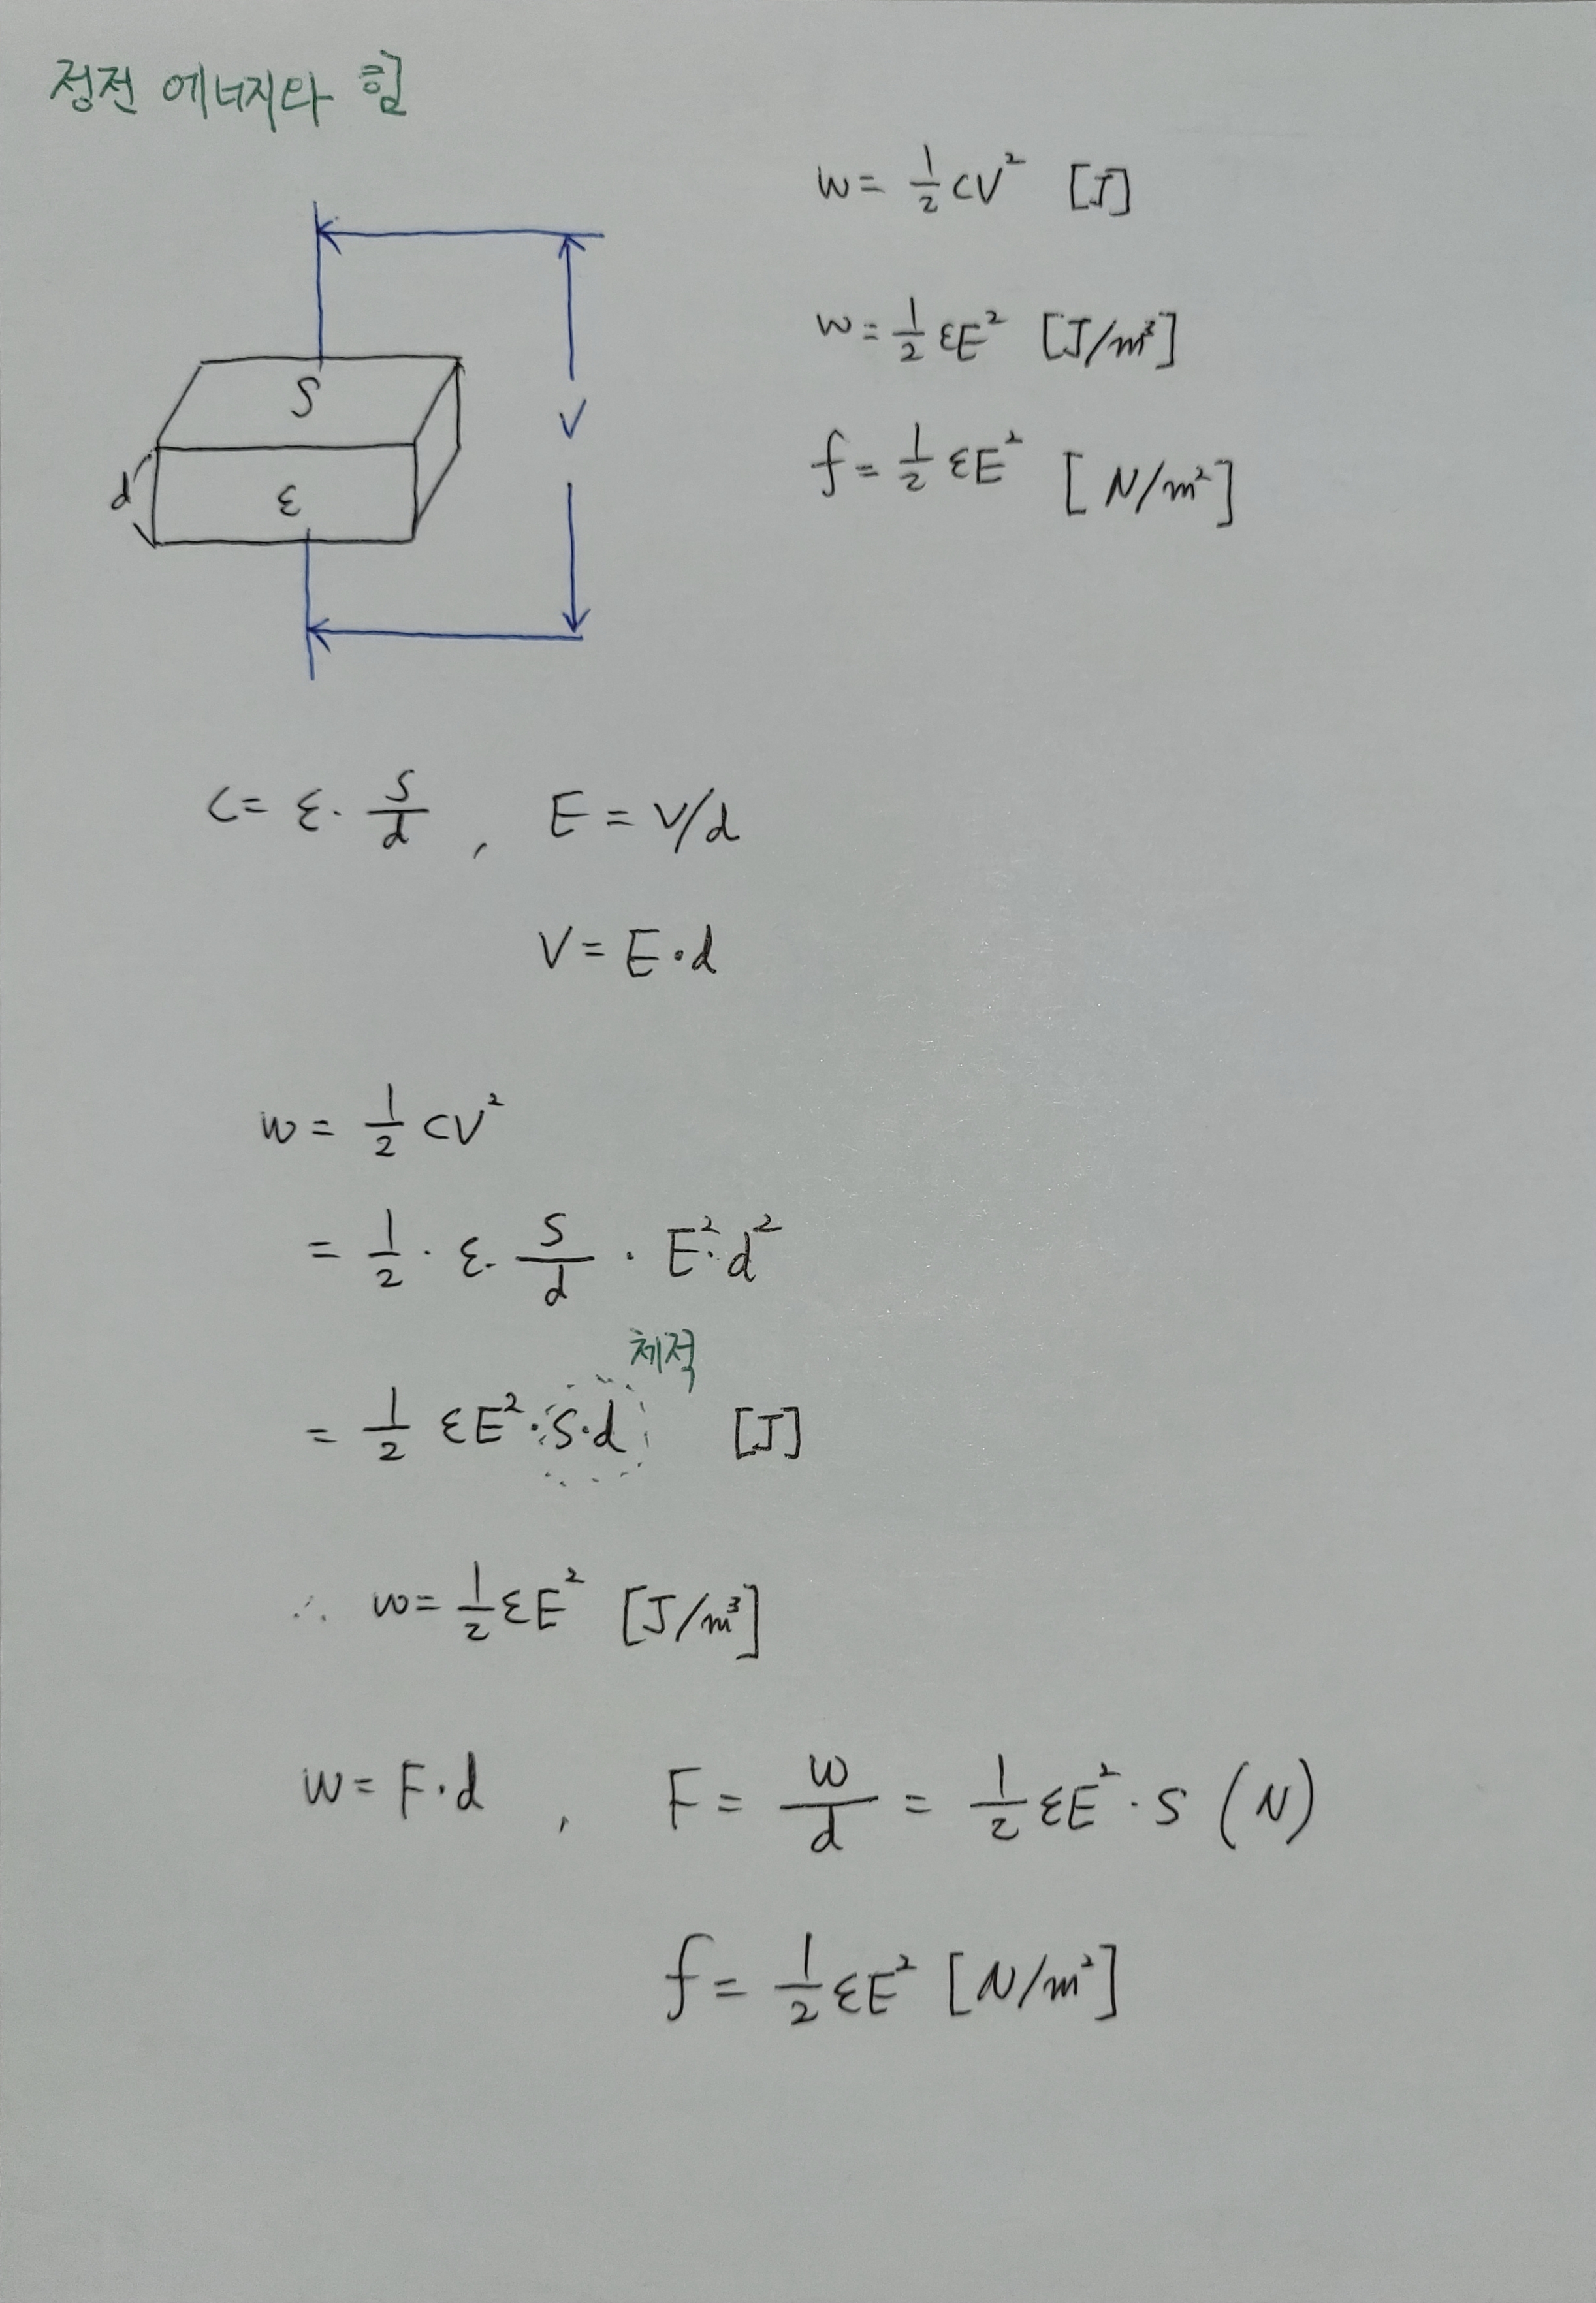 정전 에너지와 힘
W = 1/2 CV² [J]
w = 1/2 εE² [J/m³]
f = 1/2 εE² [N/m²]
S
V
d
ε
C = ε · S/d , E = V/d
V = E · d
W = 1/2 CV²
= 1/2 · ε · S/d · E² · d²
체적
= 1/2 εE² · S · d [J]
∴ w = 1/2 εE² [J/m³]
W = F · d , F = W/d = 1/2 εE² · S (N)
f = 1/2 εE² [N/m²]